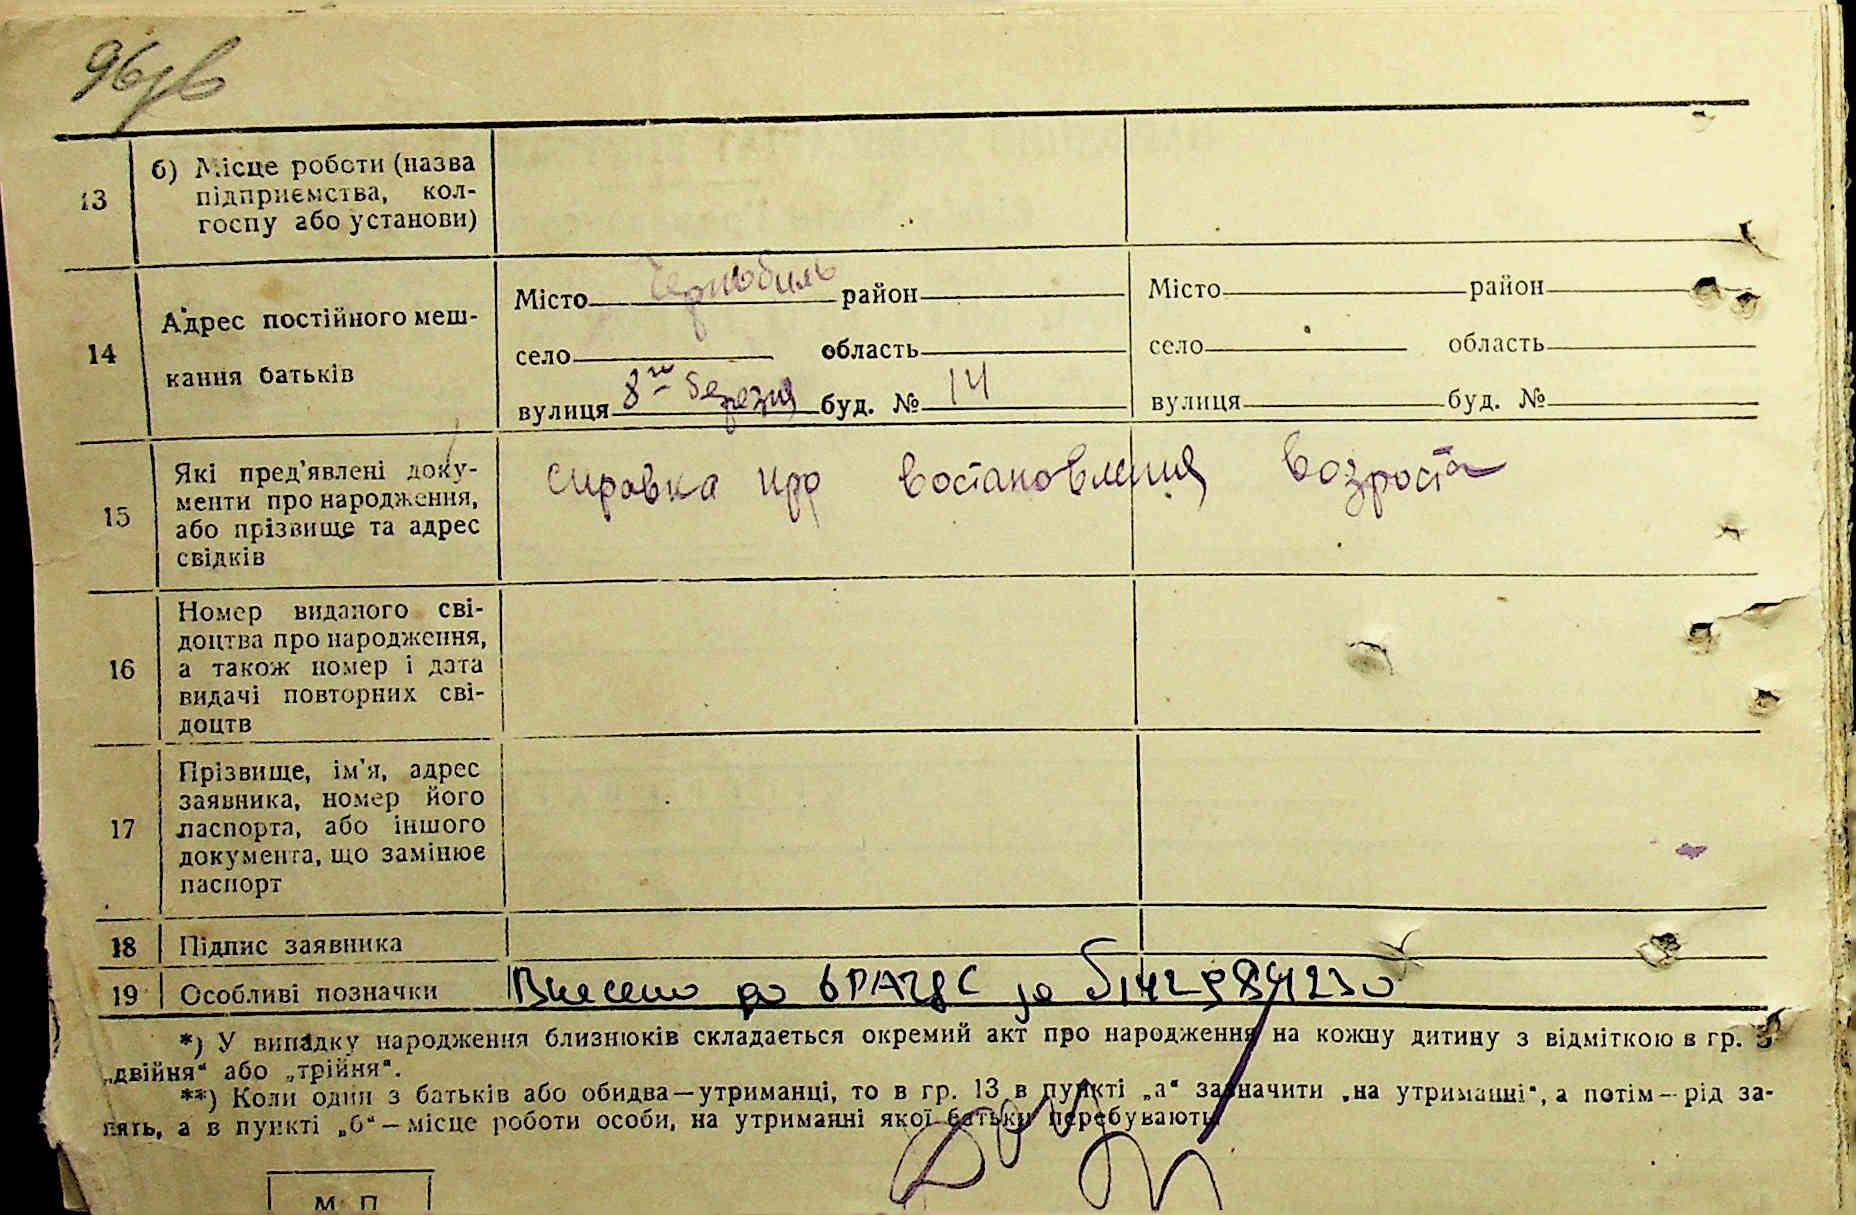 96
13
б) Місце роботи (назва
підприємства, кол-
госпу або установи)
14
Адрес постійного меш-
кання батьків
Місто Чернобиль район
село область
вулиця 8го Березня буд. № 14
Місто район
село область
вулиця буд. №
15
Які пред'явлені доку-
менти про народження,
або прізвище та адрес
свідків
справка про востановлення возроста
16
Номер виданого сві-
доцтва про народження,
а також номер і дата
видачі повторних сві-
доцтв
17
Прізвище, ім'я, адрес
заявника, номер його
паспорта, або іншого
документа, що замінює
паспорт
18 Підпис заявника
19 Особливі позначки Внесено до ЄРАЦС за
*) У випадку народження близнюків складається окремий акт про народження на кожну дитину з відміткою в гр. 3
„двійня“ або „трійня“.
**) Коли один з батьків або обидва—утриманці, то в гр. 13 в пункті „а“ зазначити „на утриманні“, а потім—рід за-
нять, а в пункті „б“—місце роботи особи, на утриманні якої батьки перебувають.
М П